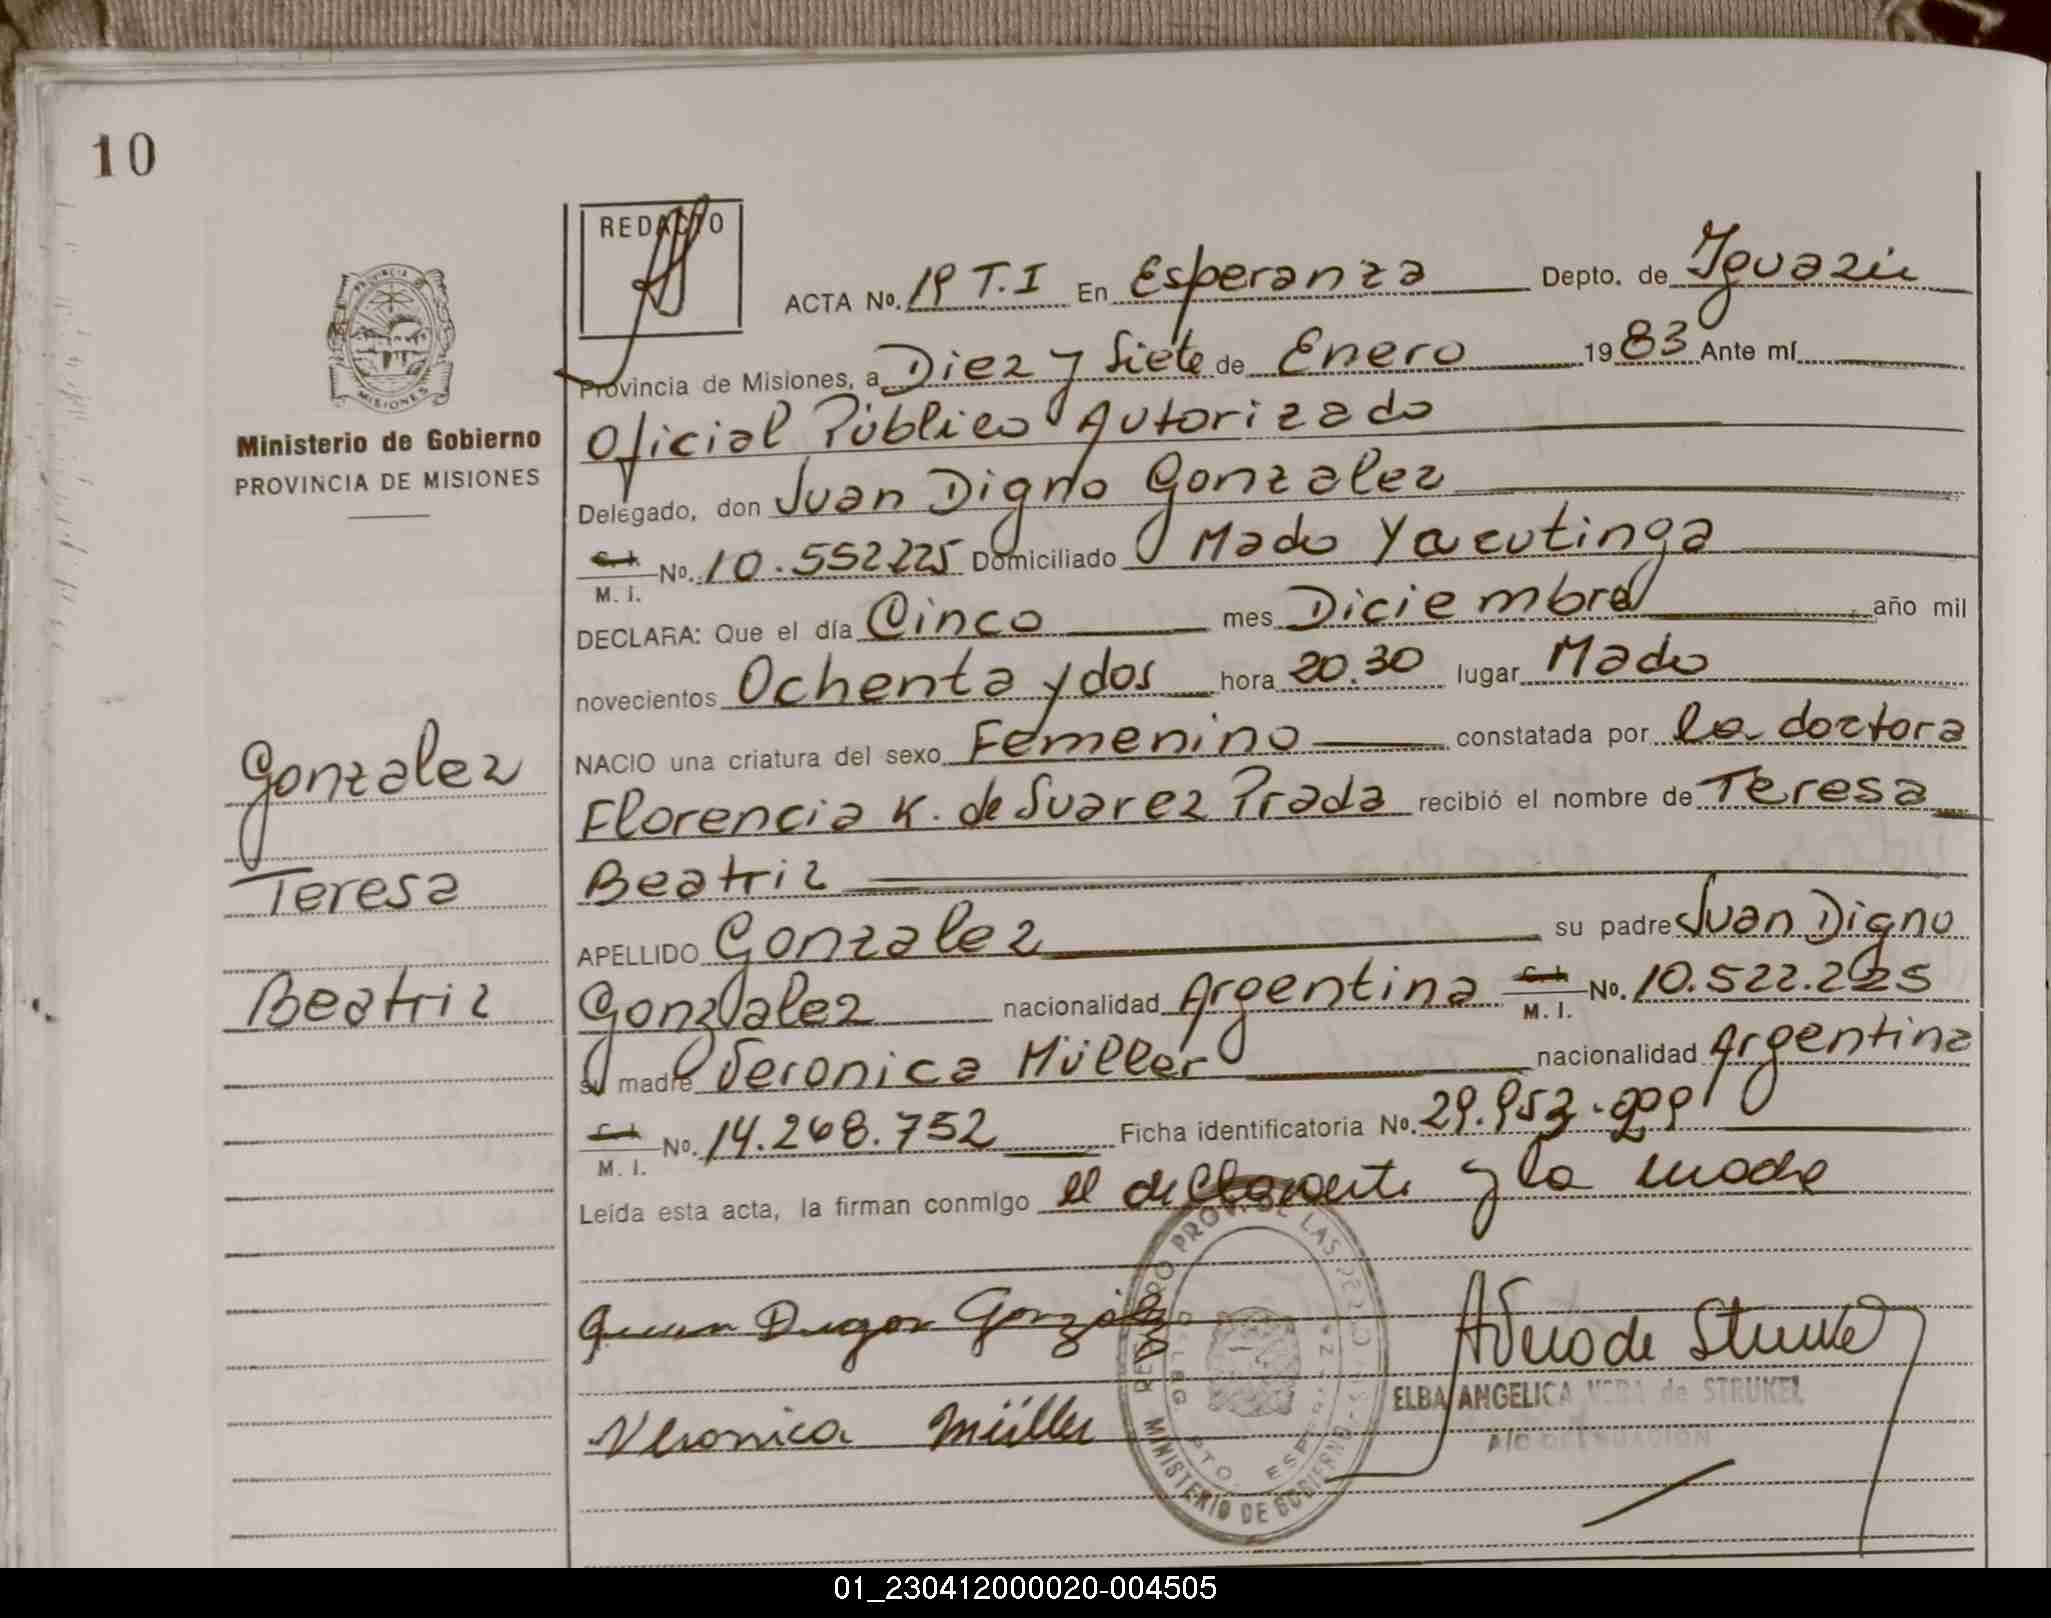 10
REDACTO
ACTA No. 19 T.I En Esperanza Depto. de Iguazú
Provincia de Misiones, a Diez y Siete de Enero 1983 Ante mí
Oficial Público Autorizado
Delegado, don Juan Digno Gonzalez
C. I. M. I. No. 10.552225 Domiciliado Mado Yacutinga
DECLARA: Que el día Cinco mes Diciembre año mil
novecientos Ochenta y dos hora 20.30 lugar Mado
NACIO una criatura del sexo Femenino constatada por la doctora
Florencia K. de Suarez Prada recibió el nombre de Teresa
Beatriz
APELLIDO Gonzalez su padre Juan Digno
Gonzalez nacionalidad Argentina C. I. M. I. No. 10.522.225
su madre Veronica Müller nacionalidad Argentina
C. I. M. I. No. 14.268.752 Ficha identificatoria No. 29.953.909
Leída esta acta, la firman conmigo el declarante y la madre
PROVINCIA
MISIONES
Ministerio de Gobierno
PROVINCIA DE MISIONES
Gonzalez
Teresa
Beatriz
Juan Digno González
Veronica Müller
REGISTRO PROV. DE LAS PERSONAS
MINISTERIO DE GOBIERNO
DELEG. PTO. ESPERANZA
AVera de Strukel
ELBA ANGELICA VERA de STRUKEL
A/C DELEGACION
01_230412000020-004505